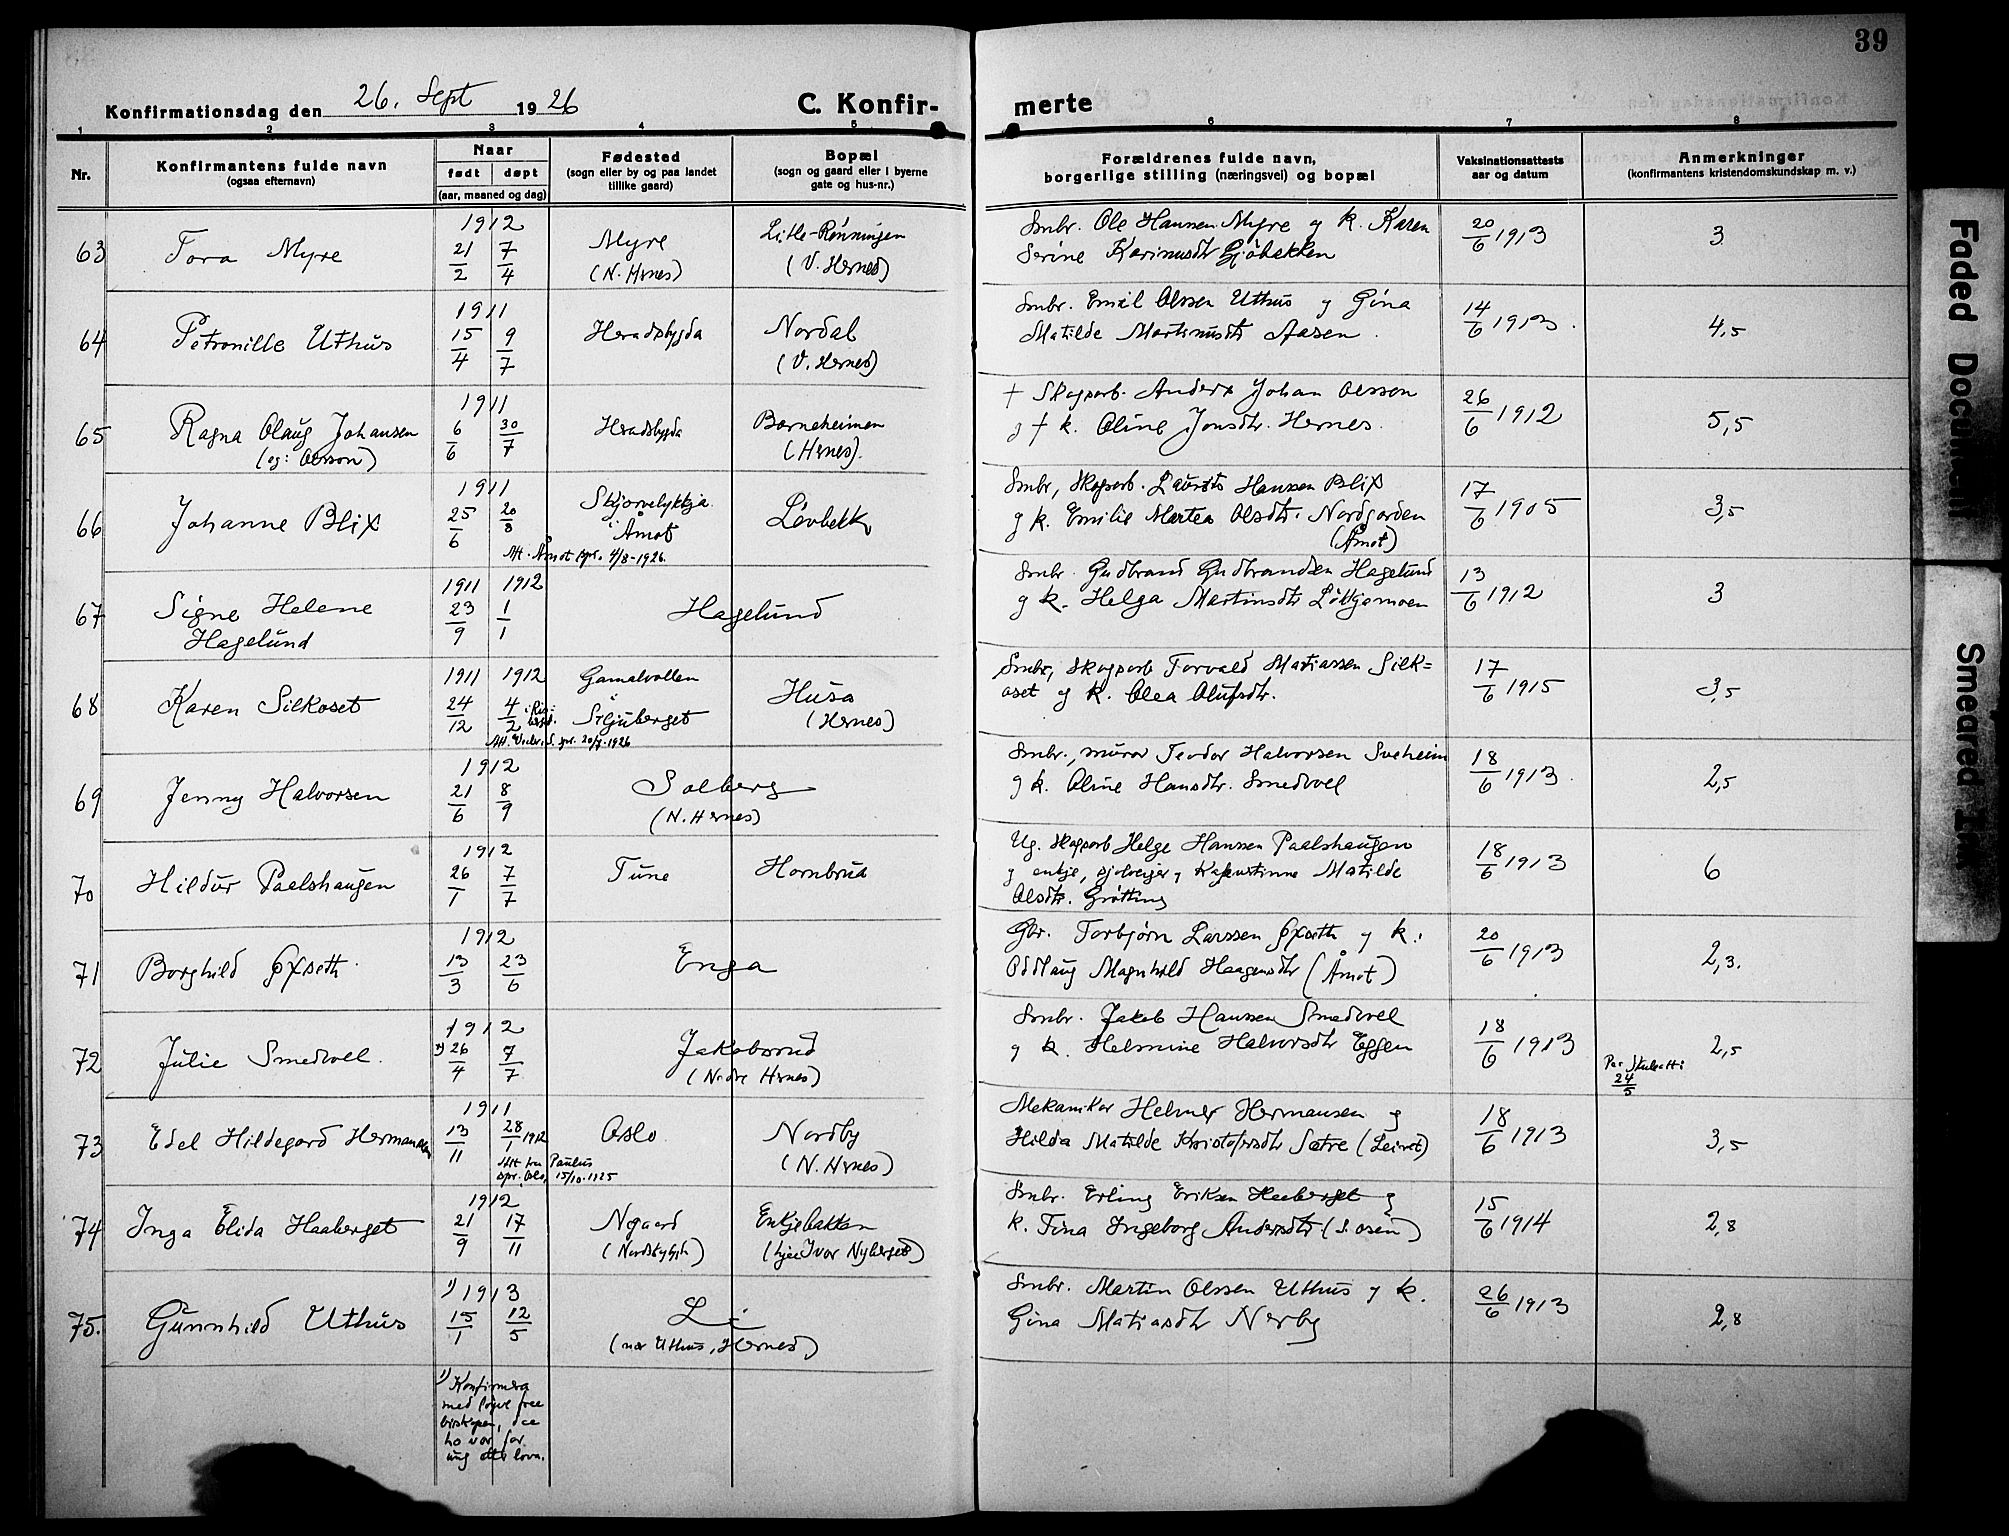 39
Konfirmationsdag den 26. Sept 1926
C. Konfir- merte
1 2 3 4 5 6 7 8
Nr.
Konfirmantens fulde navn
(ogsaa efternavn)
Naar
født døpt
(aar, maaned og dag)
Fødested
(sogn eller by og paa landet
tillike gaard)
Bopæl
(sogn og gaard eller i byerne
gate og hus-nr.)
Forældrenes fulde navn,
borgerlige stilling (næringsvei) og bopæl
Vaksinationsattests
aar og datum
Anmerkninger
(konfirmantens kristendomskundskap m. v.)
63 Tora Myre
1912
21/2 7/4
Myre
(N. Hernes)
Litle-Rønningen
(V. Hernes)
Smbr. Ole Hansen Myre og k. Karen
Serine Karinusdtr Gjöbekken
20/6 1913
3
64 Petronille Uthus
1911
15/4 9/7
Heradsbygda
Nordal
(V. Hernes)
Smbr. Emil Olssen Uthus og Gina
Matilde Martinusdtr Aasen.
14/6 1913.
4,5
65 Ragna Olaug Johansen
1911
6/6 30/7
Heradsbygda
Barneheimen
(Hernes).
† Skogsarb. Anders Johan Olsson
og † k. Oline Jonsdtr. Hernes.
26/6 1912
5,5
66 Johanne Blix
1911
25/6 20/8
i Åmot
Att. Åmot spr. 4/8-1926
Løvbekk
Smbr, skogsarb. Laurits Hansen Blix
og k. Emilie Martea Olsdtr. Nordgarden
(Åmot)
17/6 1905
3,5
67 Signe Helene
Hagelund
1911 1912
23/9 1/1
Hagelund
Smbr. Gudbrand Gudbrandsen Hagelund
og k. Helga Martinsdtr Løkkjamoen
13/6 1912
3
68 Karen Silkoset
1911 1912
24/12 4/2
Gamalvollen
Siljuberget
Husa
(Hernes)
Smbr, skogsarb Torvald Matiassen Silk=
oset og k. Olea Olufsdtr.
17/6 1915
3,5
69 Jenny Halvorsen
1912
21/6 8/9
Solberg
(N. Hernes)
Smbr., murar Teodor Halvorsen Sveheim
og k. Oline Hansdtr. Smedvol
18/6 1913.
2,5
70 Hildur Paalshaugen
1912
26/1 7/7
Tune
Hornbrua
Ug. skogsarb Helge Hansen Paalshaugen
Matilde
Olsdtr. Grötting
18/6 1913
6
71 Borghild Øxseth.
1912
13/3 23/6
Enga
Gbr. Torbjørn Larssen Øxseth og k.:
Oddlaug Magnhild Haagensdtr (Åmot)
20/6 1913
2,3.
72 Julie Smedvoll.
1912
1) 26/4 7/7
Jakobsrud
(Nedre Hernes)
Smbr. Jakob Hansen Smedvol
og k. Helmine Halvorsdtr Eggen
18/6 1913
2,5
24/5
73 Edel Hildegard Hermansen
1911
13/11 28/1 1912
Att fra Paulus
spr. Oslo, 15/10.1925
Oslo
Nordby
(N. Hernes)
Mekaniker Helmer Hermansen og
Hilda Matilde Kristofersdtr Sætre (Leiret)
18/6 1913
3,5
74 Inga Elida Haaberget
1912
21/9 17/11
Nygaard
(Nordskybygda)
Enkjebakken
(hjaa Ivar Nyberget)
Smbr. Erling Eriksen Haaberget og
k. Tina Ingeborg Andersdtr (S. Osen)
15/6 1914
2,8
75. Gunnhild Uthus
1) 1913
15/1 12/5
Li
(nær Uthus, Hernes)
Smbr. Martin Olssen Uthus og k.
Gina Matiasdtr Nerby
26/6 1913
2,8
1) Konfirmera
med løyve fraa
biskopen, daa
ho var for
ung etter lova.
Faded Document
Smeared Ink